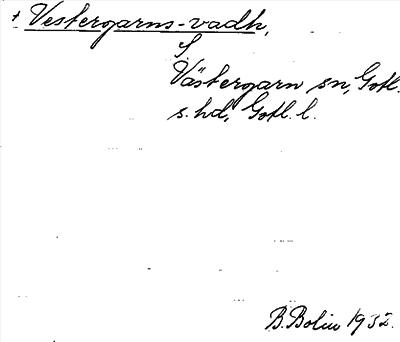 + Vestergarns-vadh,
S
Västergarn sn, Gotl.
s. hd, Gotl. l.
B. Bolin 1932.